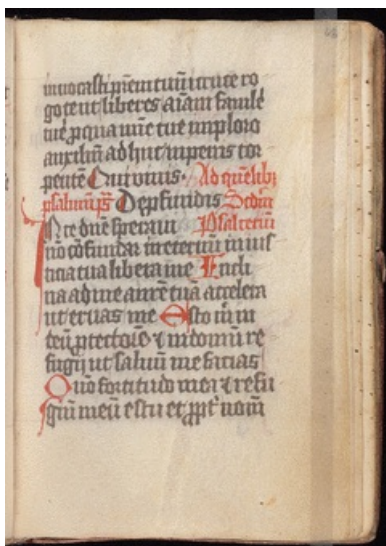 inuocasti pr̄em tuū i cruce ro
go te ut liberes aīam famule
tue p qua mīe tue imploro
auxiliū ad huc in penis
Qui viuis. Ad quēlibꝫ
psalmū ps De ꝓfundis Scdm
In te dn̄e speraui Psalteriū
nō cōfundar ineternū in ius
ticia tua libera me Incli
na ad me aurē tuā accelera
ut eruas me Esto m̄ in
deū ꝓtectorē ⁊ in domū re
fugij ut saluū me facias
Qm̄ fortitudo mea ⁊ refu
giū meū es tu et ꝓpt' nomē